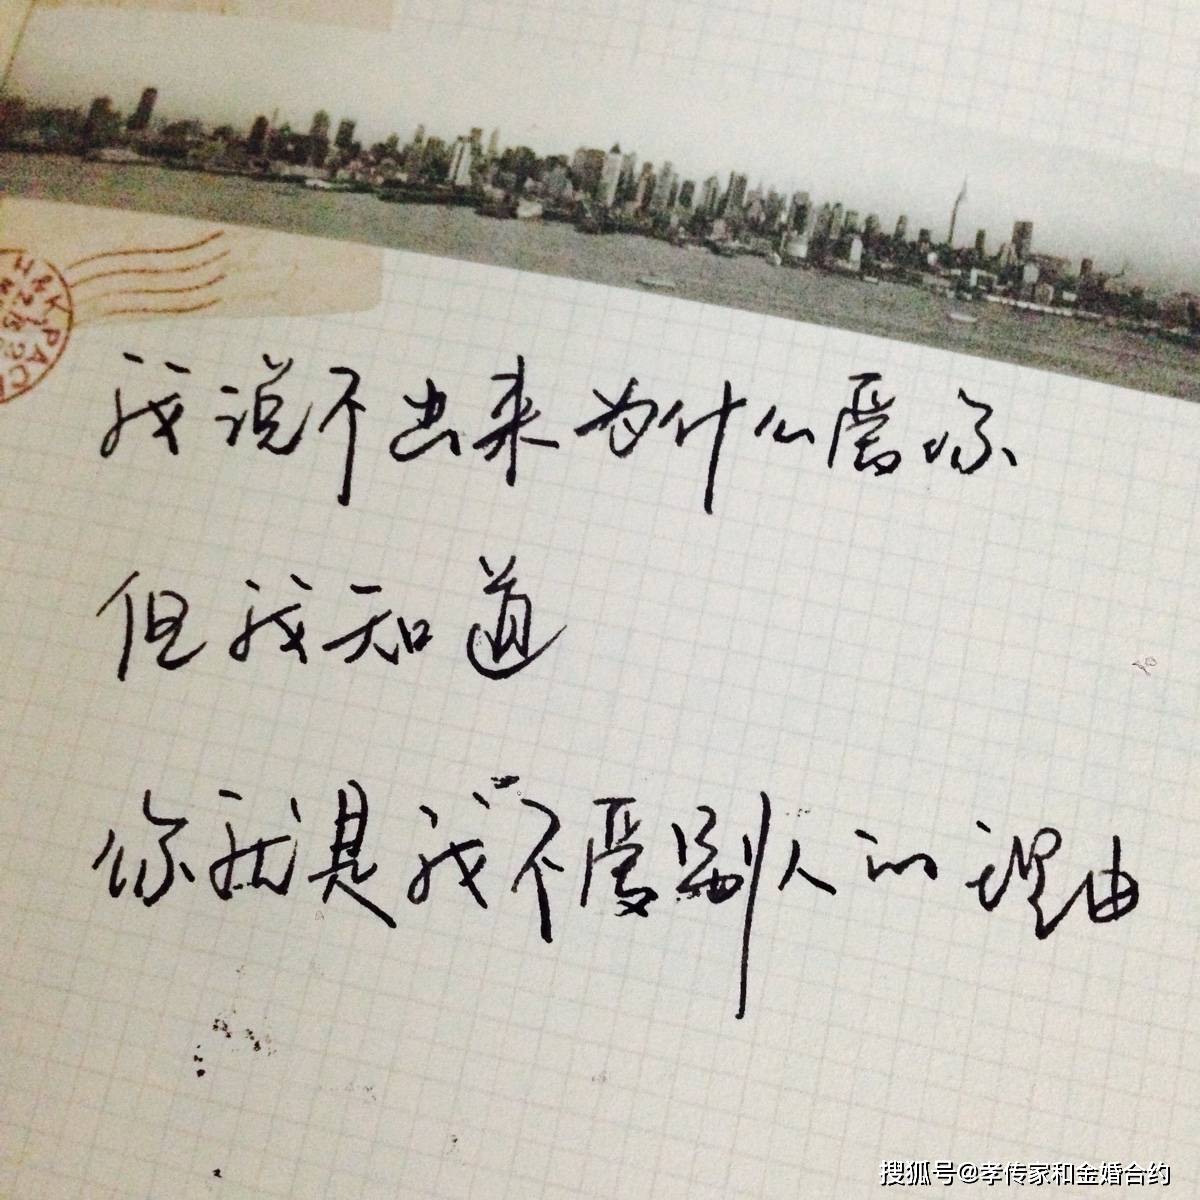 我说不出来为什么爱你
但我知道
你就是我不爱别人的理由
搜狐号@孝传家和金婚合约